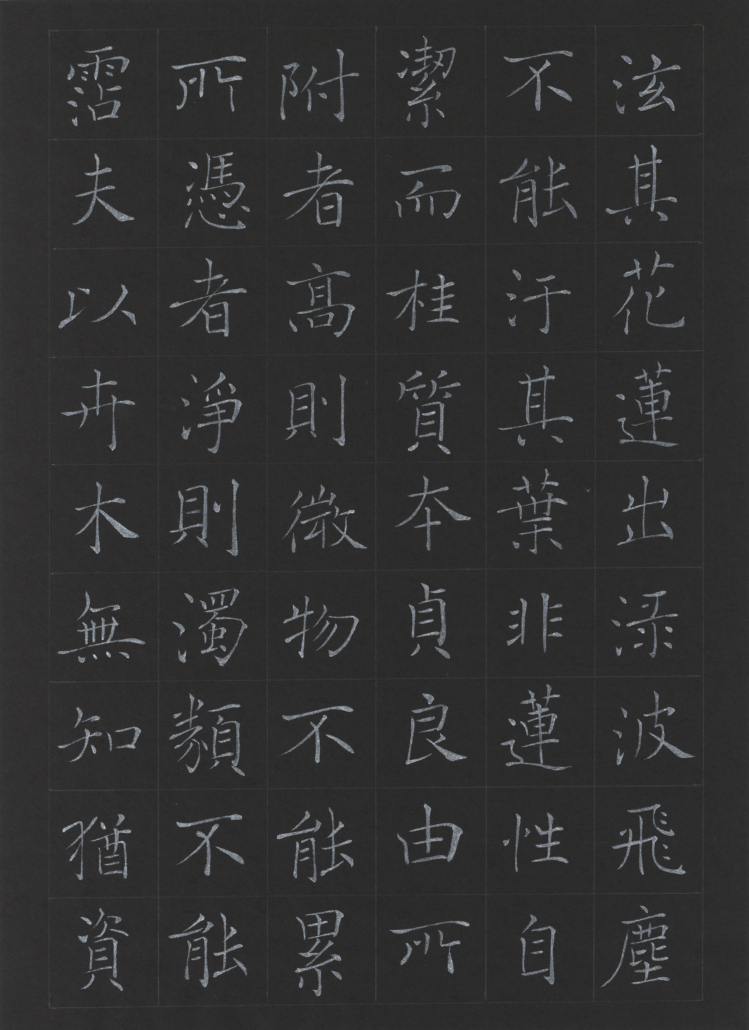 泫其花蓮出渌波飛塵
不能汙其葉非蓮性自
潔而桂質本貞良由所
附者高則微物不能累
所憑者淨則濁類不能
霑夫以卉木無知猶資